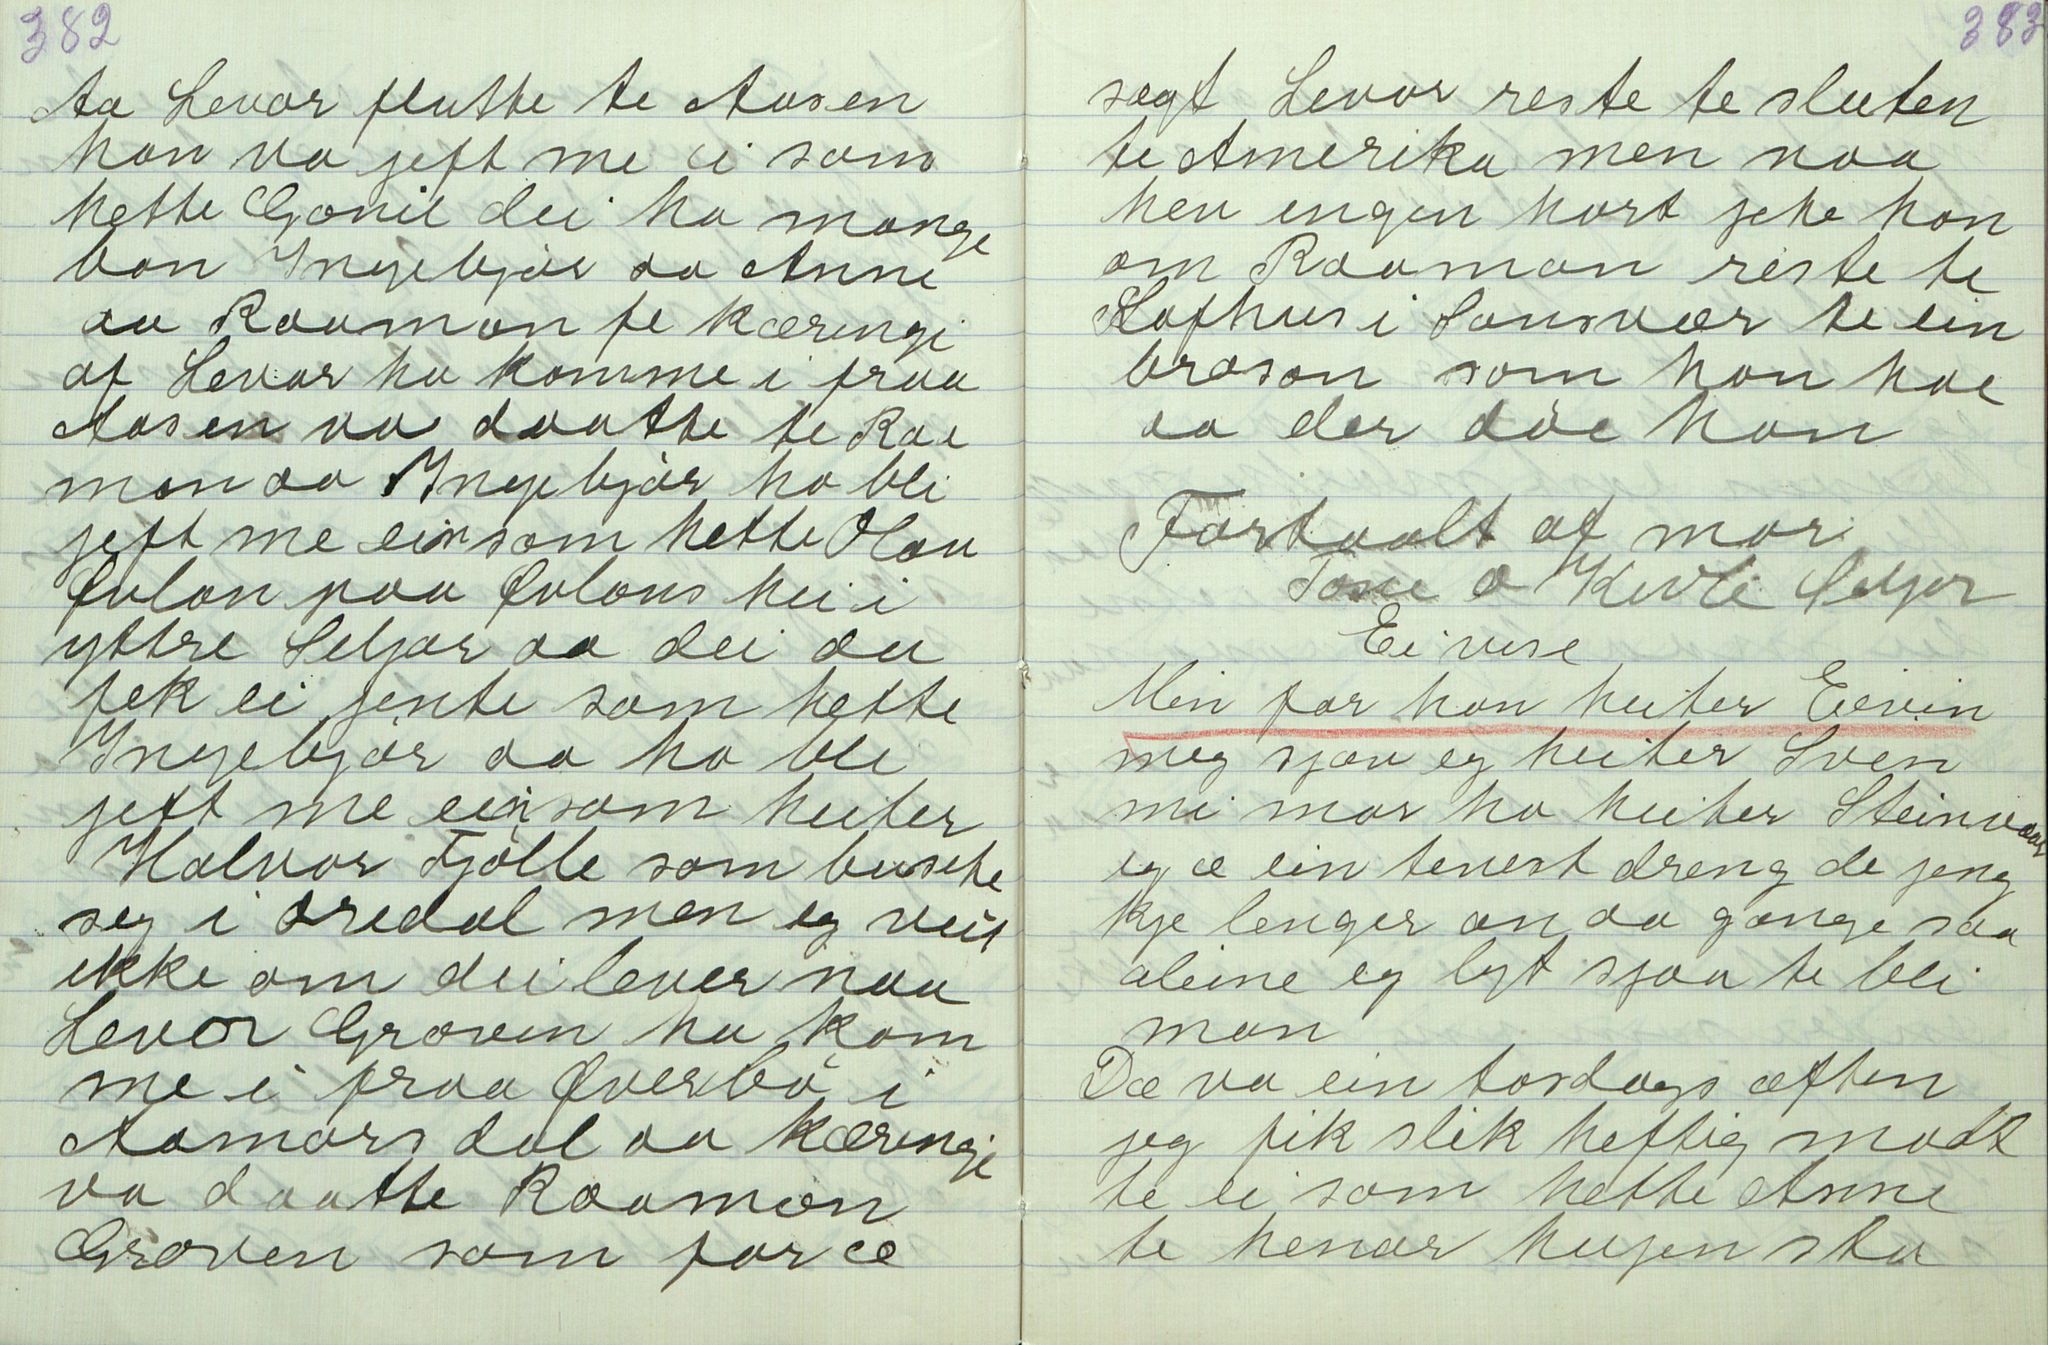 382
Aa Levor flutte te Aasen
han va jeft me ei som
hette Gonil dei ha mange
bon Ingebjør aa Anne
aa Raamon fe kæringi
af Levor ha komme i fraa
Aasen va daatte te Raa
mon aa Ingebjør ho blei
jeft me ein som hette Olav
Øvlon paa Øvlons hei i
yttre Seljor aa dei du
fek ei jente som hette
Ingebjør aa ho blei
jeft me ein som heiter
Halvor Fjølle som busete
seg i øredal men eg veit
ikke om dei lever naa
Levor Groven ha kom
me i fraa Øverbø i
Aamorsdal aa kæringi
va daatte Raamon
Groven som for æ
383
sagt Levor reste te sluten
te Amerika men naa
hev ingen hort jete han
om Raamon reste te
Hofhus i Sonsvær te ein
broson som han hae
aa der døe han
Fortaalt af mor
Tone O Kivle Seljor
Ei vise
Min far han heiter Eivin
meg sjøv eg heiter Sven
mi mor ho heiter Steinvaar
eg æ ein tenest dreng de jeng
kje lenger on aa gonge saa
aleine eg lyt sjaa te bli
mon
Dæ va ein tosdags æften
jeg fik slik heftig modt
te ei som hette Anne
te henar hugen sto